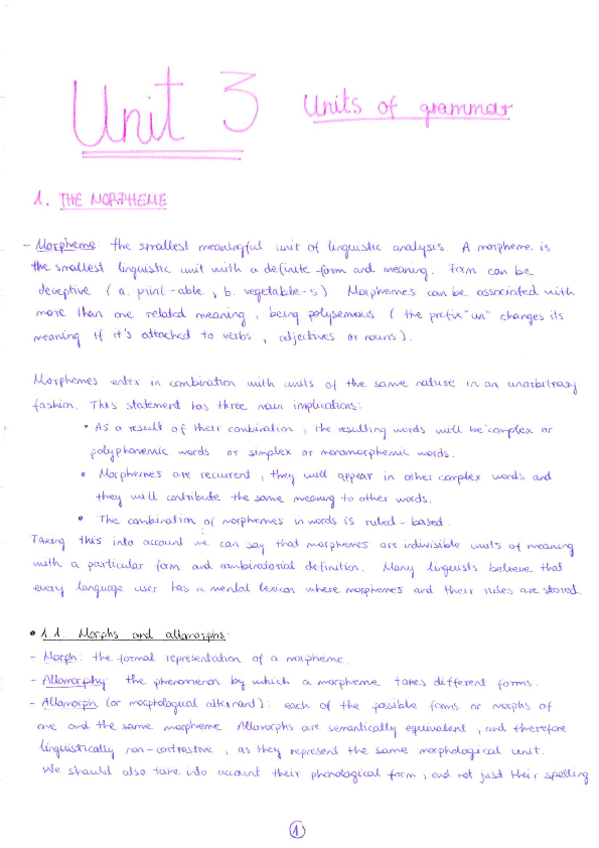 Unit 3 Units of grammar
1. THE MORPHEME
- Morpheme: the smallest meaningful unit of linguistic analysis. A morpheme is
the smallest linguistic unit with a definite form and meaning. Form can be
deceptive (a. print-able, b. vegetable-s) Morphemes can be associated with
more than one related meaning, being polysemous (the prefix "un" changes its
meaning if it's attached to verbs, adjectives or nouns).
Morphemes enter in combination with units of the same nature in an unarbitrary
fashion. This statement has three main implications:
• As a result of their combination, the resulting words will be complex or
polyphonemic words or simplex or monomorphemic words.
• Morphemes are recurrent, they will appear in other complex words and
they will contribute the same meaning to other words.
• The combination of morphemes in words is ruled-based.
Taking this into account we can say that morphemes are indivisible units of meaning
with a particular form and combinatorial definition. Many linguists believe that
every language user has a mental lexicon where morphemes and their rules are stored.
• 1.1. Morphs and allomorphs:
- Morph: the formal representation of a morpheme.
- Allomorphy: the phenomenon by which a morpheme takes different forms.
- Allomorph (or morphological alternant): each of the possible forms or morphs of
one and the same morpheme. Allomorphs are semantically equivalent, and therefore
linguistically non-contrastive, as they represent the same morphological unit.
We should also take into account their phonological form, and not just their spelling
1